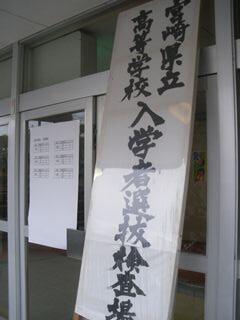 宮崎県立
高等学校
入学者選抜検査場